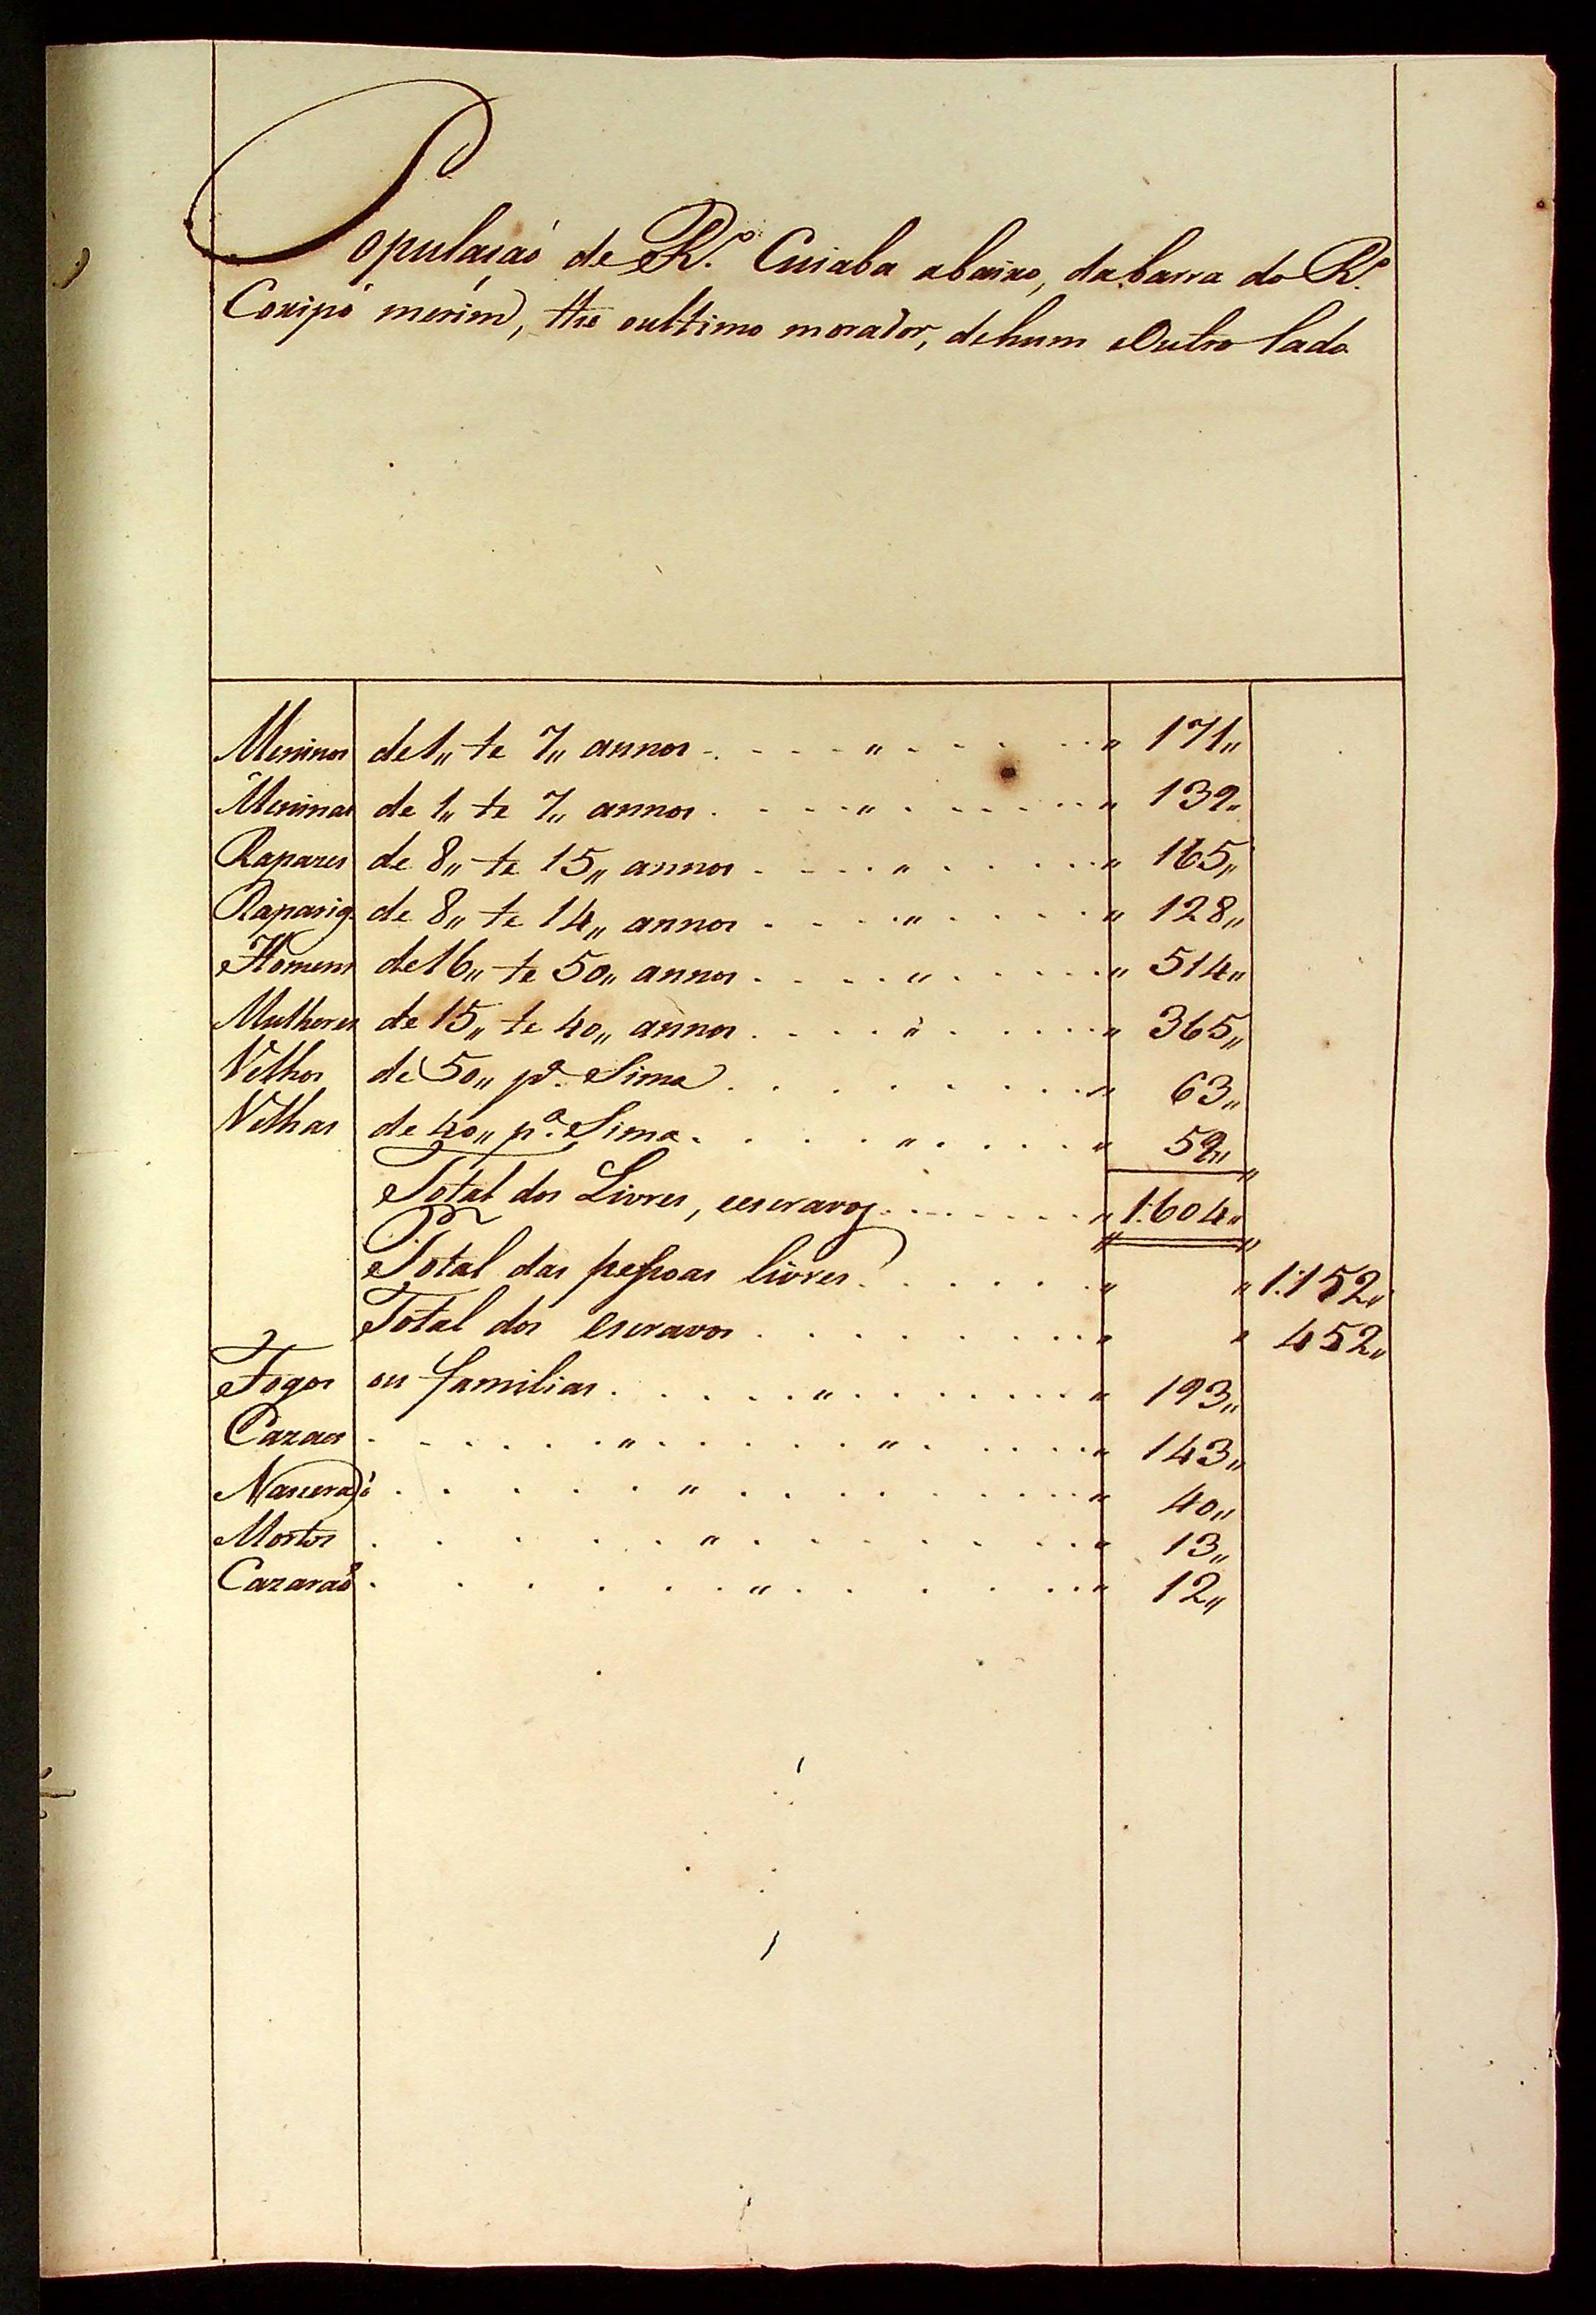 Populaçaõ de R.º Cuiaba abaixo, da barra do R.º
Coxipó merim, the oultimo morador, de hum e Outro lado
Meninos de 1,, te 7,, annos 171,,
Meninas de 1,, te 7,, annos 139,,
Rapazes de 8,, te 15,, annos 165,,
Raparig.s de 8,, te 14,, annos 128,,
Homens de 16,, te 50,, annos 514,,
Mulheres de 15,, te 40,, annos 365,,
Velhos de 50,, p.ª Sima 63,,
Velhas de 40,, p.ª Sima 59,,
Total dos Livres, e escravos 1:604,,
Total das pessoas livres 1:152,,
Total dos escravos 452,,
Fogos ou familias 193,,
Cazaes 143,,
Nasceraõ 40,,
Mortos 13,,
Cazaraõ 12,,